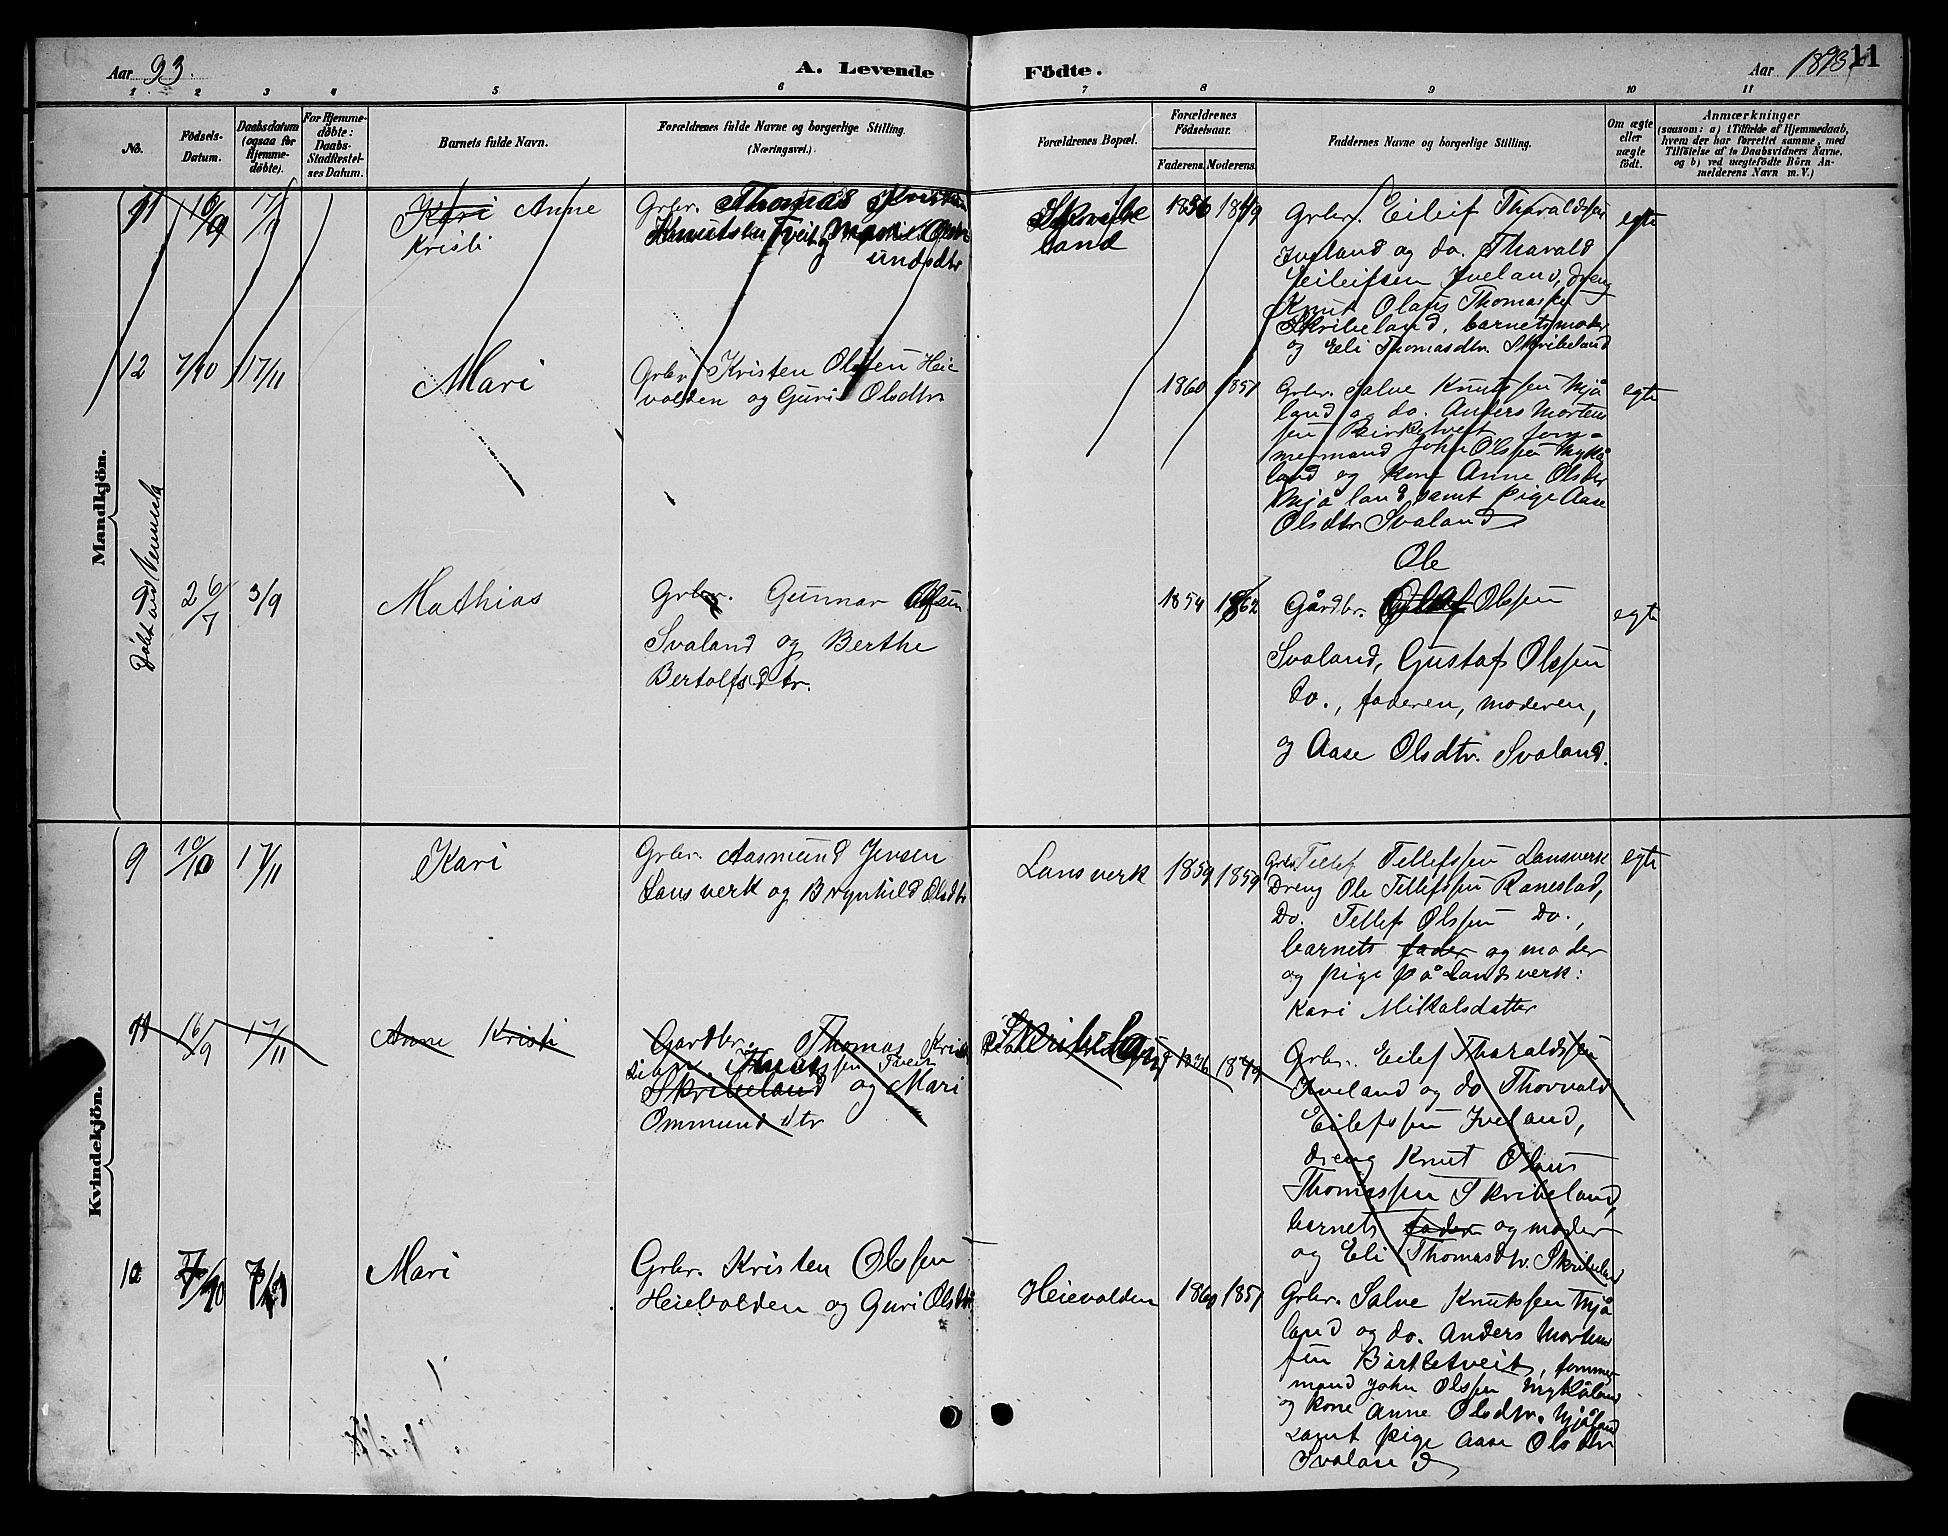 Aar 93.
A. Levende Födte.
Aar 1893. 11
1 2 3 4 5 6 7 8 9 10 11
No.
Födsels-
Datum.
Daabsdatum
(ogsaa for
Hjemme-
døbte).
For Hjemme-
døbte:
Daabs-
Stadfæstel-
ses Datum.
Barnets fulde Navn.
Forældrenes fulde Navne og borgerlige Stilling.
(Næringsvei.)
Forældrenes Bopæl.
Forældrenes
Födselsaar.
Faderens. Moderens.
Faddernes Navne og borgerlige Stilling.
Om ægte
eller
uægte
födt.
Anmærkninger
(saasom: a) i Tilfælde af Hjemmedaab,
hvem der har forrettet samme, med
Tilföielse af to Daabsvidners Navne,
og b) ved uægtefödte Börn An-
melderens Navn m.V.)
Mandkjön.
11 16/9 17/
Kari Anne
Kristi
Grbr. Thomas
Knutsen Tveit og Mari
undsdtr
Skribe
land
1836 1849
Grbr. Eilif Tharaldsen
Iveland og do. Tharald
Eileifsen Iveland, dreng
Knut Olaus Thomassen
Skribeland, barnets moder
og Eli Thomasdtr. Skribeland
egte
12 7/10 17/11
Mari
Grbr. Kristen Olssen Heie
volden og Guri Olsdtr
1860 1851
Grbr. Salve Knutssen Mjå
land og do. Anders Morten
sen Birketveit, töm=
mermand John Olssen Mykå
land og kone Anne Olsdtr
Mjåland samt pige Aase
Olsdtr Svaland
egte
Döbt ang Vennesla
9 26/7 3/9
Mathias
Grbr. Gunnar Olsen
Svaland og Berthe
Bertolfsdtr.
1854 1862
Ole
Gårdbr. Olssen
Svaland, Gustaf Olssen
do., faderen, moderen,
og Aase Olsdtr. Svaland.
egte
Kvindekjön.
9 10/10 17/11
Kari
Grbr. Aasmund Jensen
Lansverk og Brynhild Olsdtr
Lansverk 1859 1859
Grbr. Tellef Tellefssen Lansverk
Dreng Ole Tellefssen Ranestad,
Do. Tellef Olssen Do.,
barnets fader og moder
og pige på Landsverk:
Kari Mikalsdatter
egte
11 16/9 17/11
Anne Kristi
Gardbr. Thomas Kri
Knutssen Tveit
Skribeland og Mari
Ommundsdtr
Skribeland 1836 1849
Grbr. Eilef Tharaldssen
Iveland og do Thorvald
Eilefssen Iveland,
dreng Knut Olaus
Thomassen Skribeland,
barnets fader og moder
og Eli Thomasdtr. Skribeland
10 7/10
Mari
Grbr. Kristen Olssen
Heievolden og Guri Olsdtr
Heievolden 1860 1851
Grbr. Salve Knutssen Mjå
land og do. Anders Morten
sen Birketveit, tömmer
mand John Olssen Mykåland
og kone Anne Olsdtr. Mjåland
samt pige Aase Olsdtr
Svaland